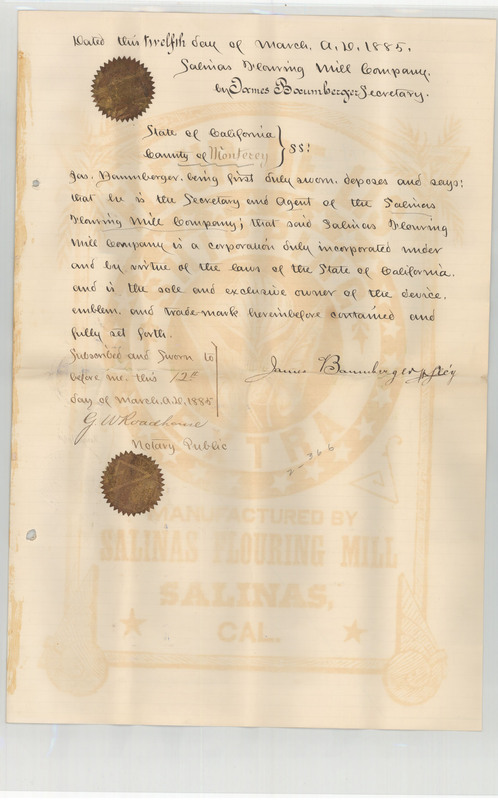 Dated this twelfth day of March, A.D. 1885.
Salinas Flouring Mill Company.
by James Baumberger Secretary.
State of California
County of Monterey } SS:
Jas. Baumberger, being first duly sworn, deposes and says:
that he is the Secretary and Agent of the Salinas
Flouring Mill Company; that said Salinas Flouring
Mill Company is a corporation duly incorporated under
and by virtue of the laws of the State of California,
and is the sole and exclusive owner of the device,
emblem, and trade-mark hereinbefore contained and
fully set forth.
Subscribed and Sworn to
before me, this 12th
day of March, A.D. 1885
James Baumberger
G W Roadhouse
Notary Public
2366
EXTRA
MANUFACTURED BY
SALINAS FLOURING MILL
SALINAS,
CAL.